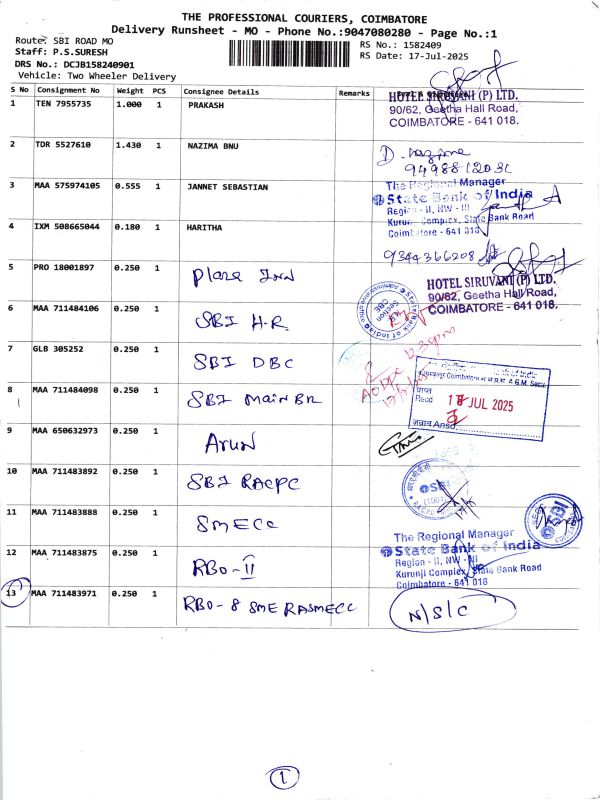 THE PROFESSIONAL COURIERS, COIMBATORE
Delivery Runsheet - MO - Phone No.:9047080280 - Page No.:1
Route: SBI ROAD MO
Staff: P.S.SURESH
DRS No.: DCJB158240901
Vehicle: Two Wheeler Delivery
RS No.: 1582409
RS Date: 17-Jul-2025
S No Consignment No Weight PCS Consignee Details Remarks
1 TEN 7955735 1.000 1 PRAKASH
HOTEL SIRUVANI (P) LTD.
90/62, Geetha Hall Road,
COIMBATORE - 641 018.
2 TDR 5527610 1.430 1 NAZIMA BNU
D. nazima
3 MAA 575974105 0.555 1 JANNET SEBASTIAN
The Regional Manager
State Bank of India
Region - II, NW - III
Kurunji Complex, State Bank Road
Coimbatore - 641 018
4 IXM 508665044 0.180 1 HARITHA
9344366208
5 PRO 18001897 0.250 1 Plaza Inn
HOTEL SIRUVANI (P) LTD.
90/62, Geetha Hall Road,
COIMBATORE - 641 018.
6 MAA 711484106 0.250 1 SBI H.R
7 GLB 305252 0.250 1 SBI DBC
8 MAA 711484098 0.250 1 SBI Main BR
Recd 17 JUL 2025
9 MAA 650632973 0.250 1 Arun
10 MAA 711483892 0.250 1 SBI RACPC
11 MAA 711483888 0.250 1 SMECC
SBI
12 MAA 711483875 0.250 1 RBO-II
The Regional Manager
State Bank of India
Region - II, NW - III
Kurunji Complex, State Bank Road
Coimbatore - 641 018
13 MAA 711483971 0.250 1 RBO-8 SME RASMECC
N/S/C
1